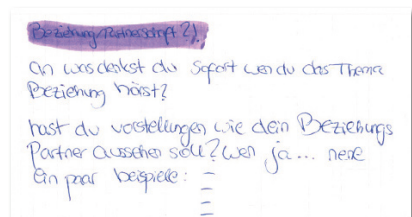 Beziehung/Partnerschaft 2).
an was denkst du sofort wen du das Thema
Beziehung hörst?
hast du vorstellungen wie dein Beziehungs
Partner aussehen soll? wen ja... nene
Ein paar beispiele: –
–
–
–